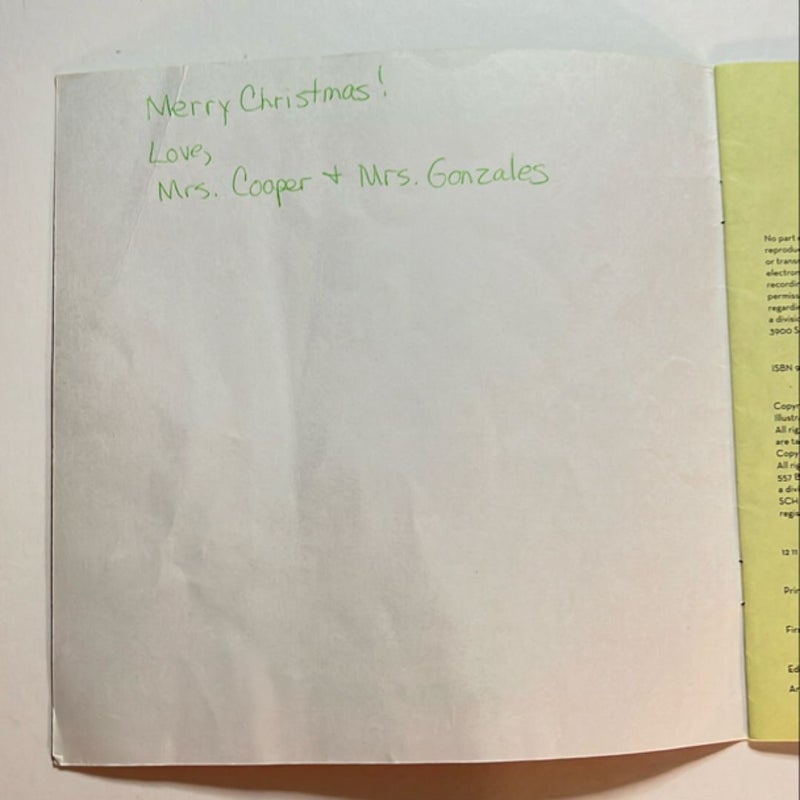 Merry Christmas!
Love,
Mrs. Cooper + Mrs. Gonzales
No part
reprodu
or trans
electron
recordin
permiss
regardi
a divisi
3900 S
ISBN 9
Copyr
Illustr
All rig
are ta
Copy
All rig
557 B
a divi
SCH
regis
12 11
Prin
Firs
Ed
Ar